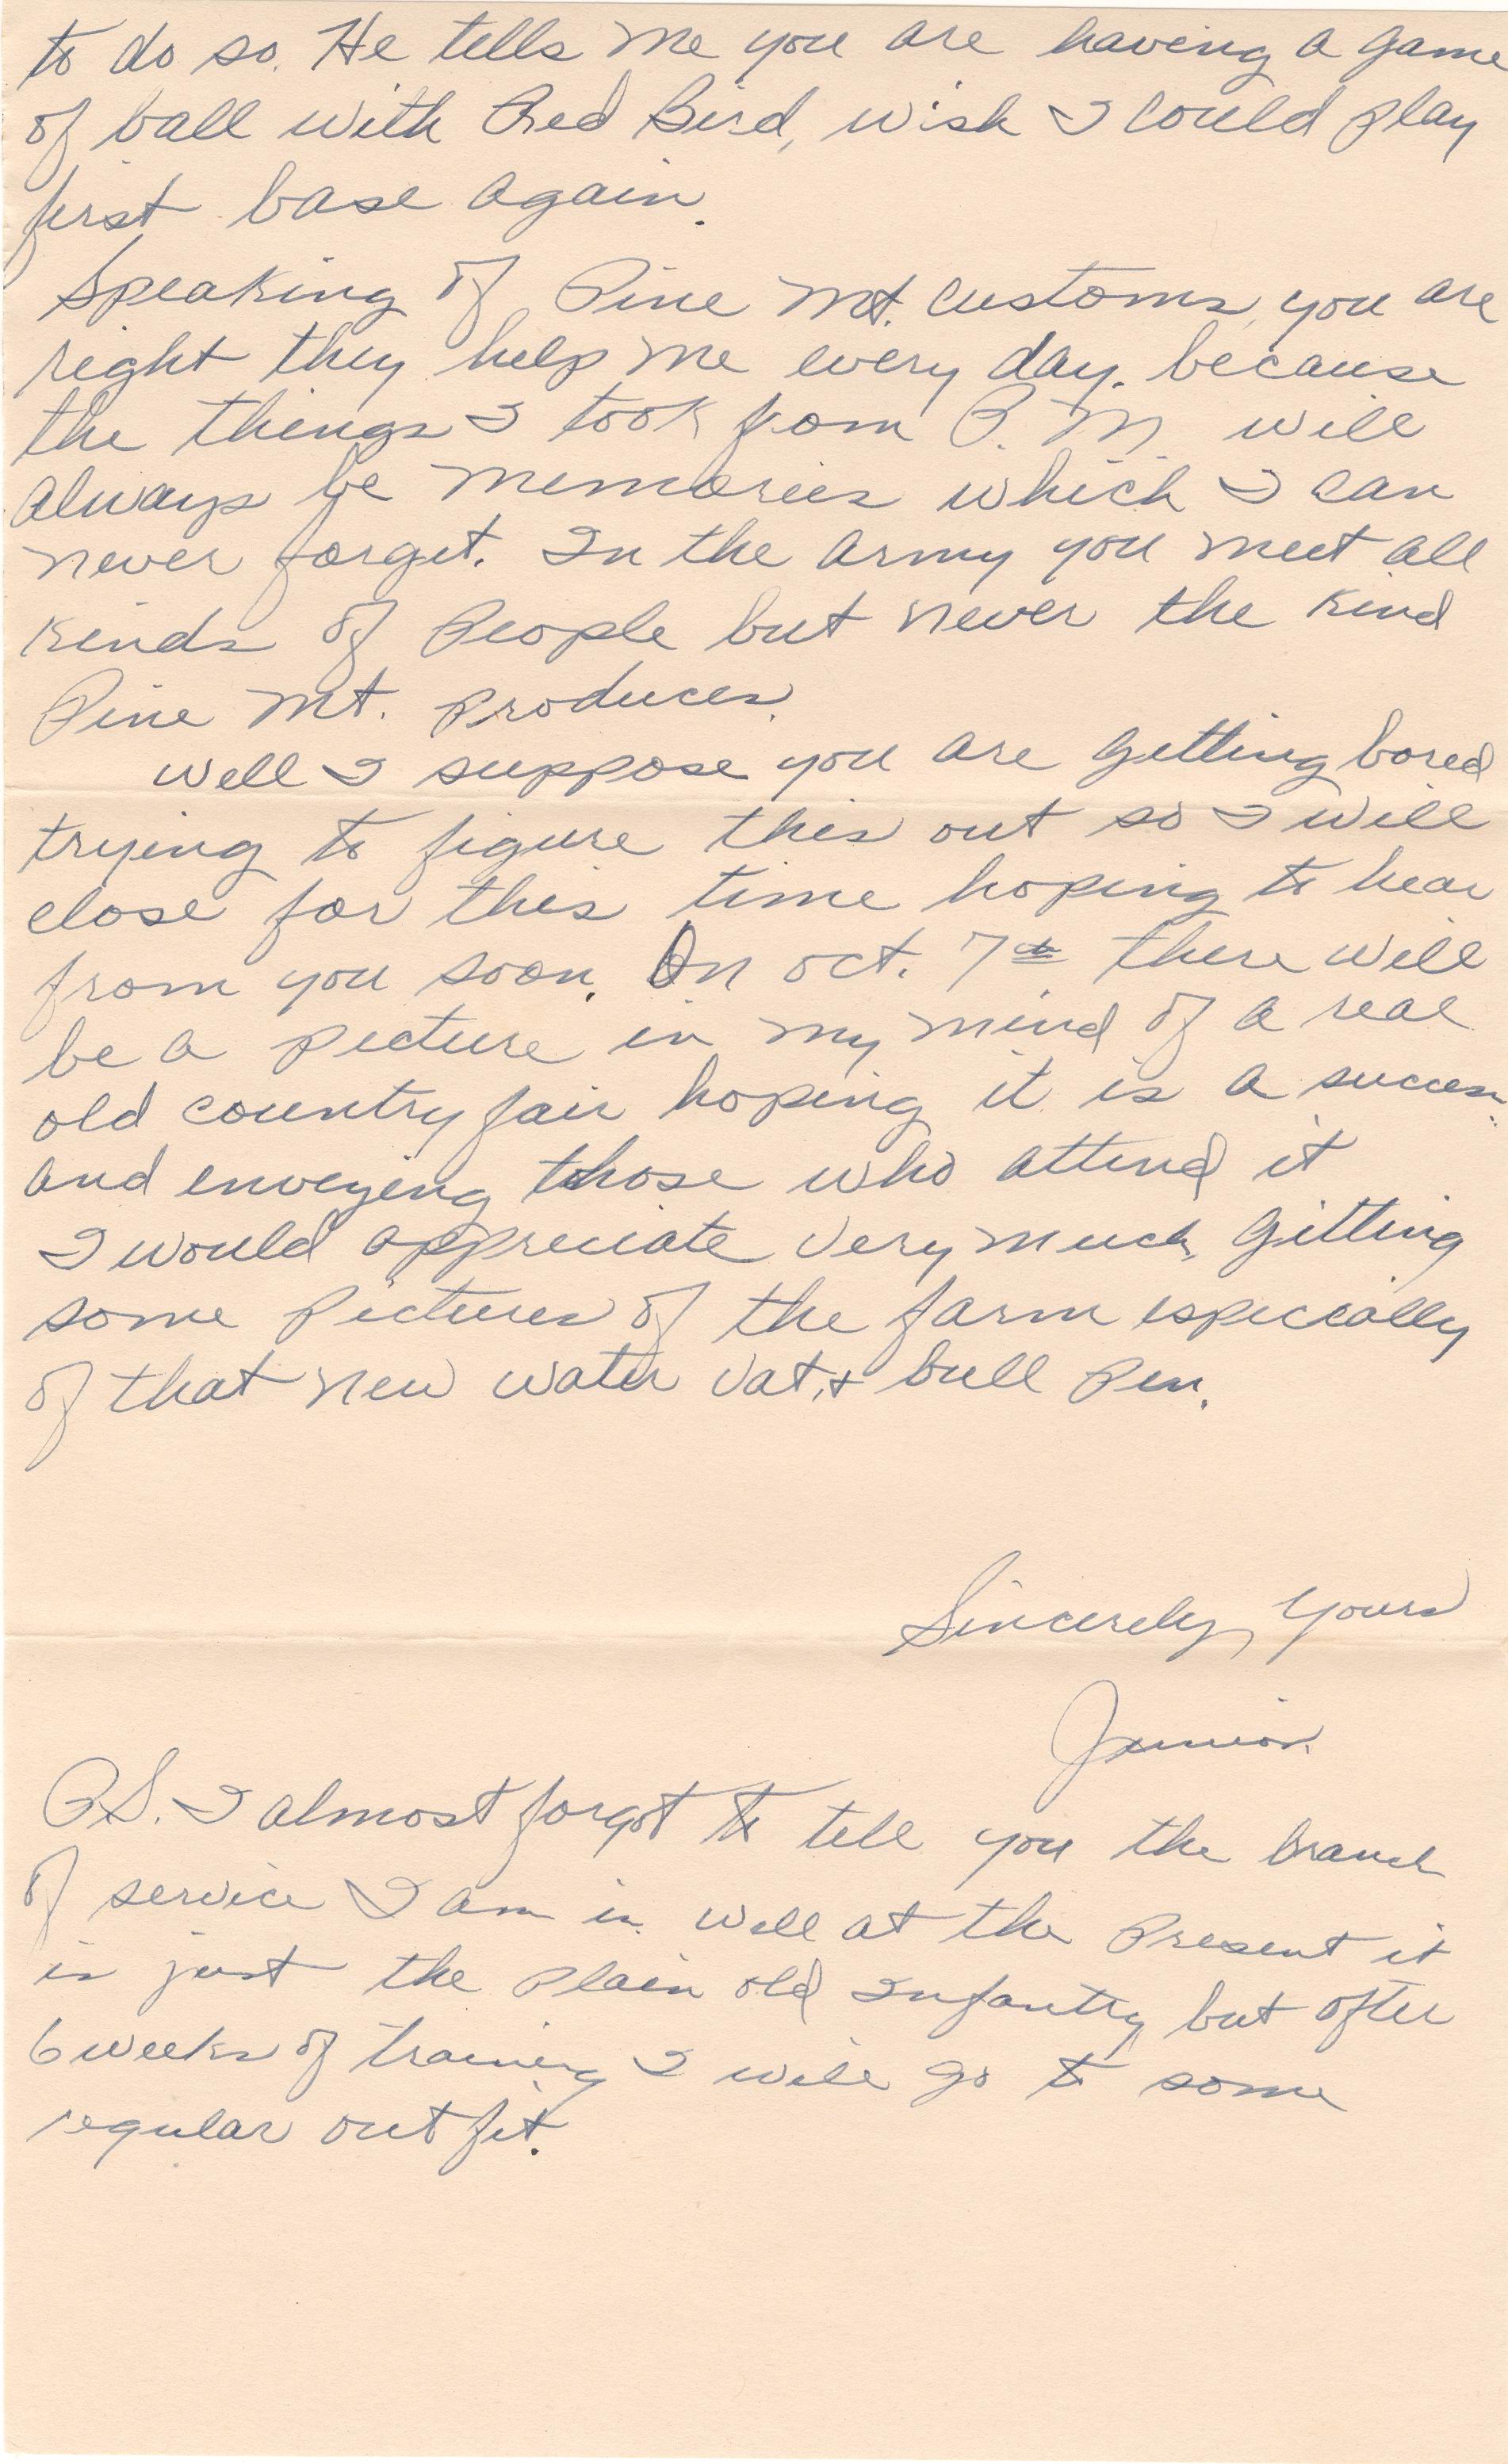 to do so. He tells me you are having a game
of ball with Red Bird, wish I could play
first base again.
Speaking of Pine Mt. customs, you are
right they help me every day. because
the things I took from P. M. will
always be memories which I can
never forget. In the army you meet all
kinds of People but never the kind
Pine Mt. produces.
Well I suppose you are getting bored
trying to figure this out so I will
close for this time hoping to hear
from you soon. On oct. 7th there will
be a picture in my mind of a real
old country fair hoping it is a success.
and envying those who attend it
I would appreciate very much, gitting
some pictures of the farm especially
of that new water vat, & bull Pen.
Sincerely, Yours
Junior.
P.S. I almost forgot to tell you the branch
of service I am in. Well at the Present it
is just the plain old Infantry but after
6 weeks of training I will go to some
regular out fit.